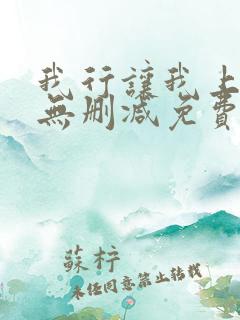 我行讓我上
無刪減免費
蘇梓
未經同意禁止轉載